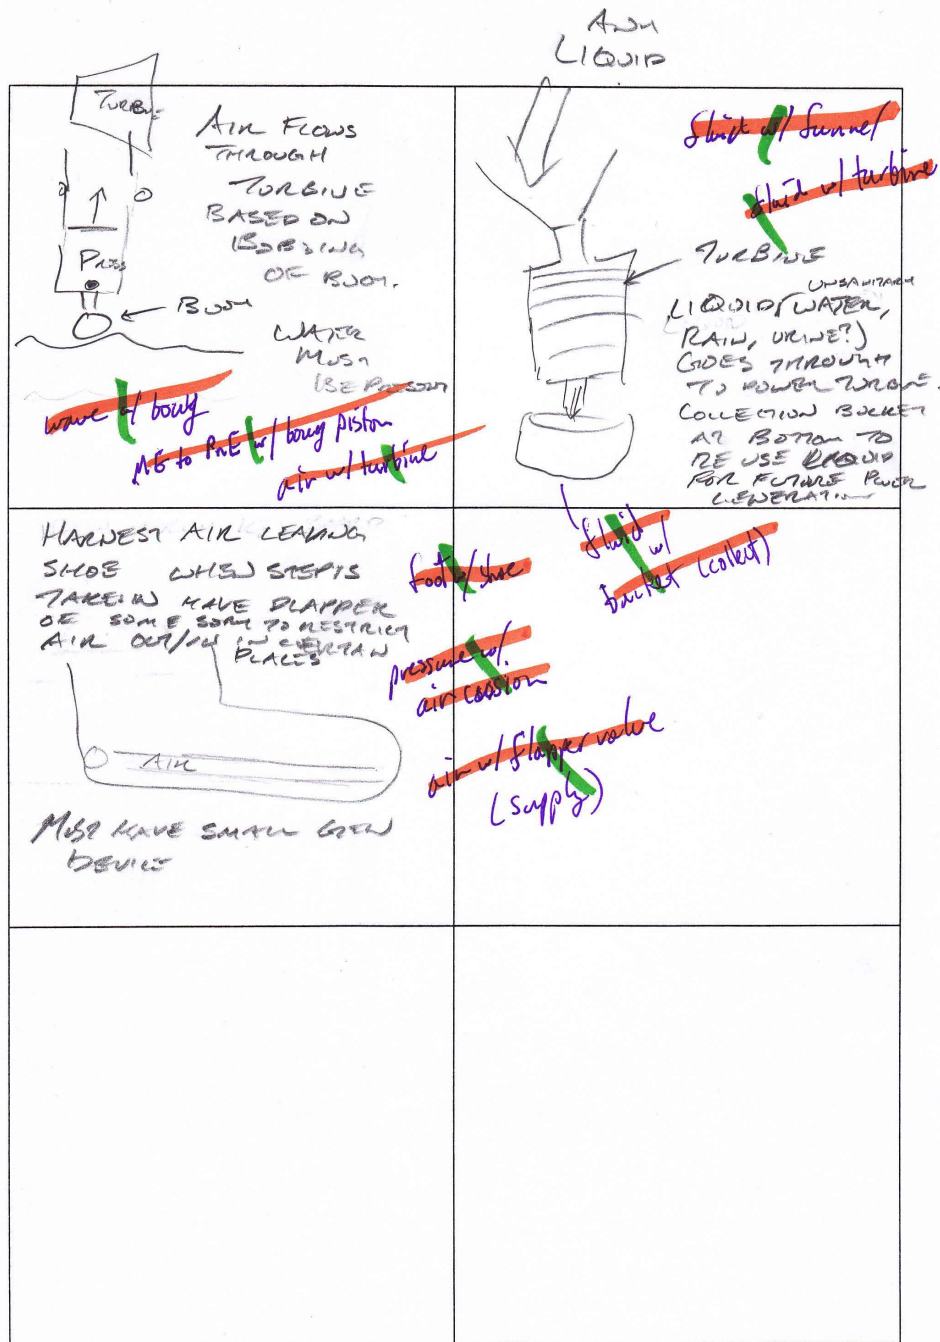 ANY
LIQUID
TURBINE
AIR FLOWS
THROUGH
TURBINE
BASED ON
BOBBING
OF BUOY.
PRESS
BUOY
WATER
MUST
BE PRESENT
wave w/ bouy
ME to PnE w/ bouy piston
air w/ turbine
fluid w/ funnel
fluid w/ turbine
TURBINE
UNSANITARY
LIQUID (WATER,
RAIN, URINE?)
GOES THROUGH
TO POWER TURBINE.
COLLECTION BUCKET
AT BOTTOM TO
RE USE LIQUID
FOR FUTURE POWER
GENERATION
fluid w/
bucket (collect)
HARVEST AIR LEAVING
SHOE WHEN STEP IS
TAKEN HAVE FLAPPER
OF SOME SORT TO RESTRICT
AIR OUT/IN IN CERTAIN
PLACES
AIR
MUST HAVE SMALL GEN
DEVICE
foot w/ shoe
pressure w/
air cossion
air w/ flapper valve
(supply)